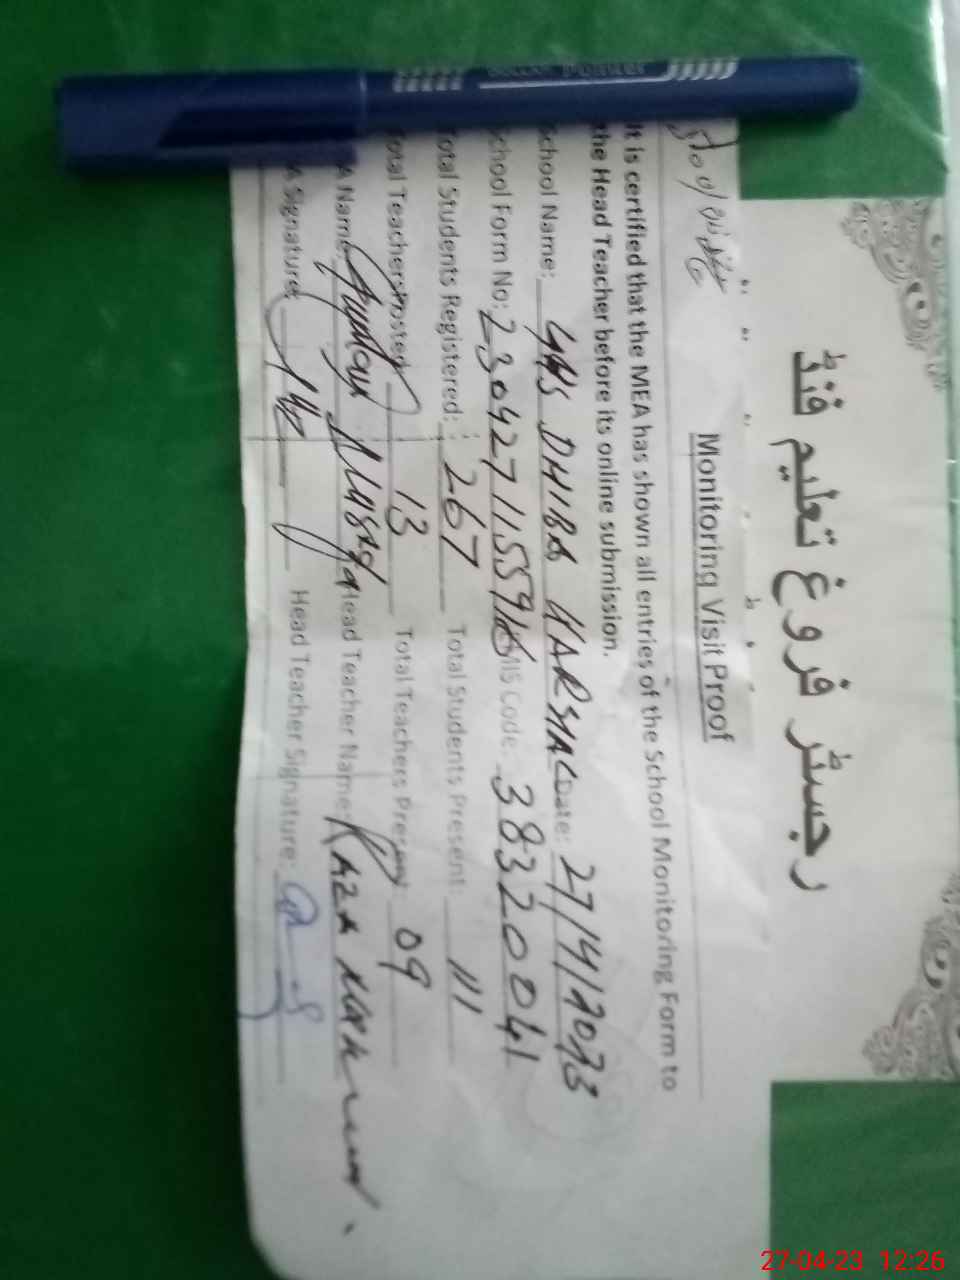 رجسٹر فروغ تعلیم فنڈ
Monitoring Visit Proof
It is certified that the MEA has shown all entries of the School Monitoring Form to
the Head Teacher before its online submission.
School Name: GHS DHIBA HARSIAL Date: 27/4/2023
School Form No: 230427115591 MIS Code: 38320041
Total Students Registered: 267 Total Students Present: 111
Total Teachers Posted 13 Total Teachers Present 09
A Name: Head Teacher Name: RAZA
A Signature: Head Teacher Signature:
DOLLAR Pointer
27-04-23 12:26